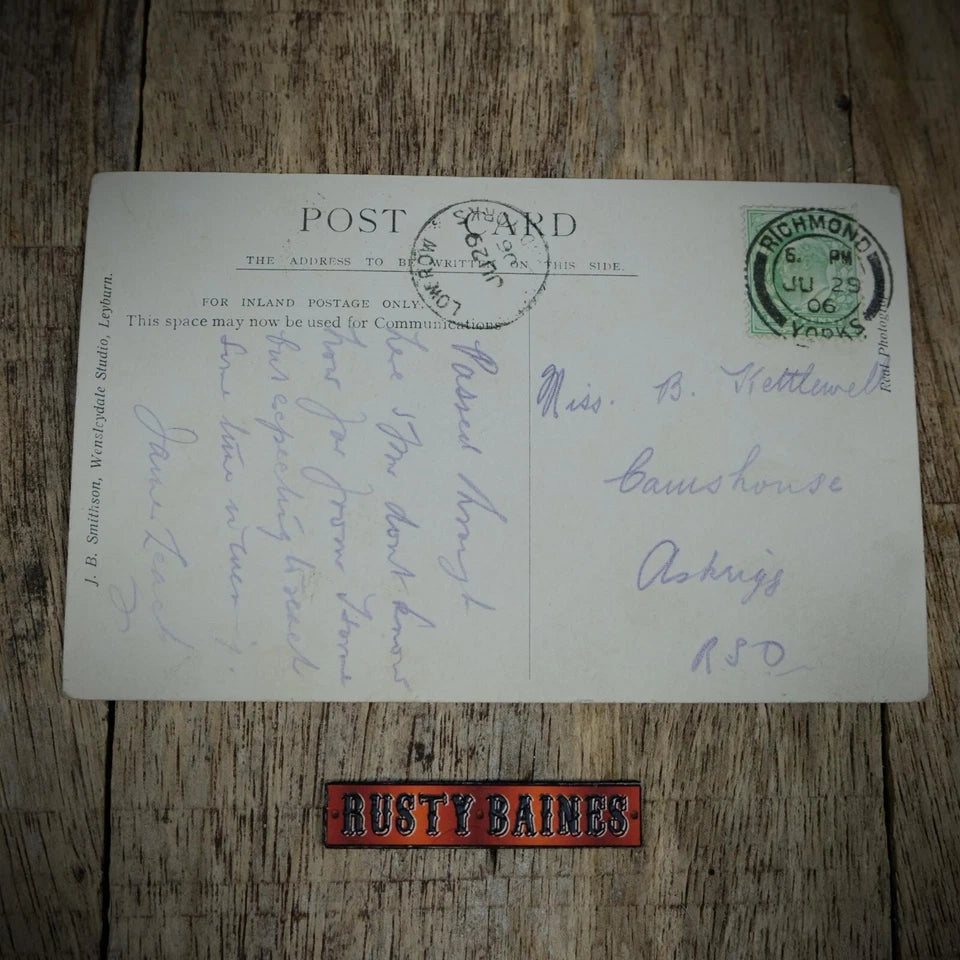 POST CARD
THE ADDRESS TO BE WRITTEN ON THIS SIDE.
FOR INLAND POSTAGE ONLY.
This space may now be used for Communications
J. B. Smithson, Wensleydale Studio, Leyburn.
Real Photograph
RICHMOND
6. PM
JU 29
06
YORKS
LOW ROW
JU 29
06
YORKS
Passed through
here 5 Pm dont know
how far from Home
but expecting to reach
some time in evening.
James
Miss. B. Kettlewell
Camshouse
Askrigg
R S O
RUSTY BAINES